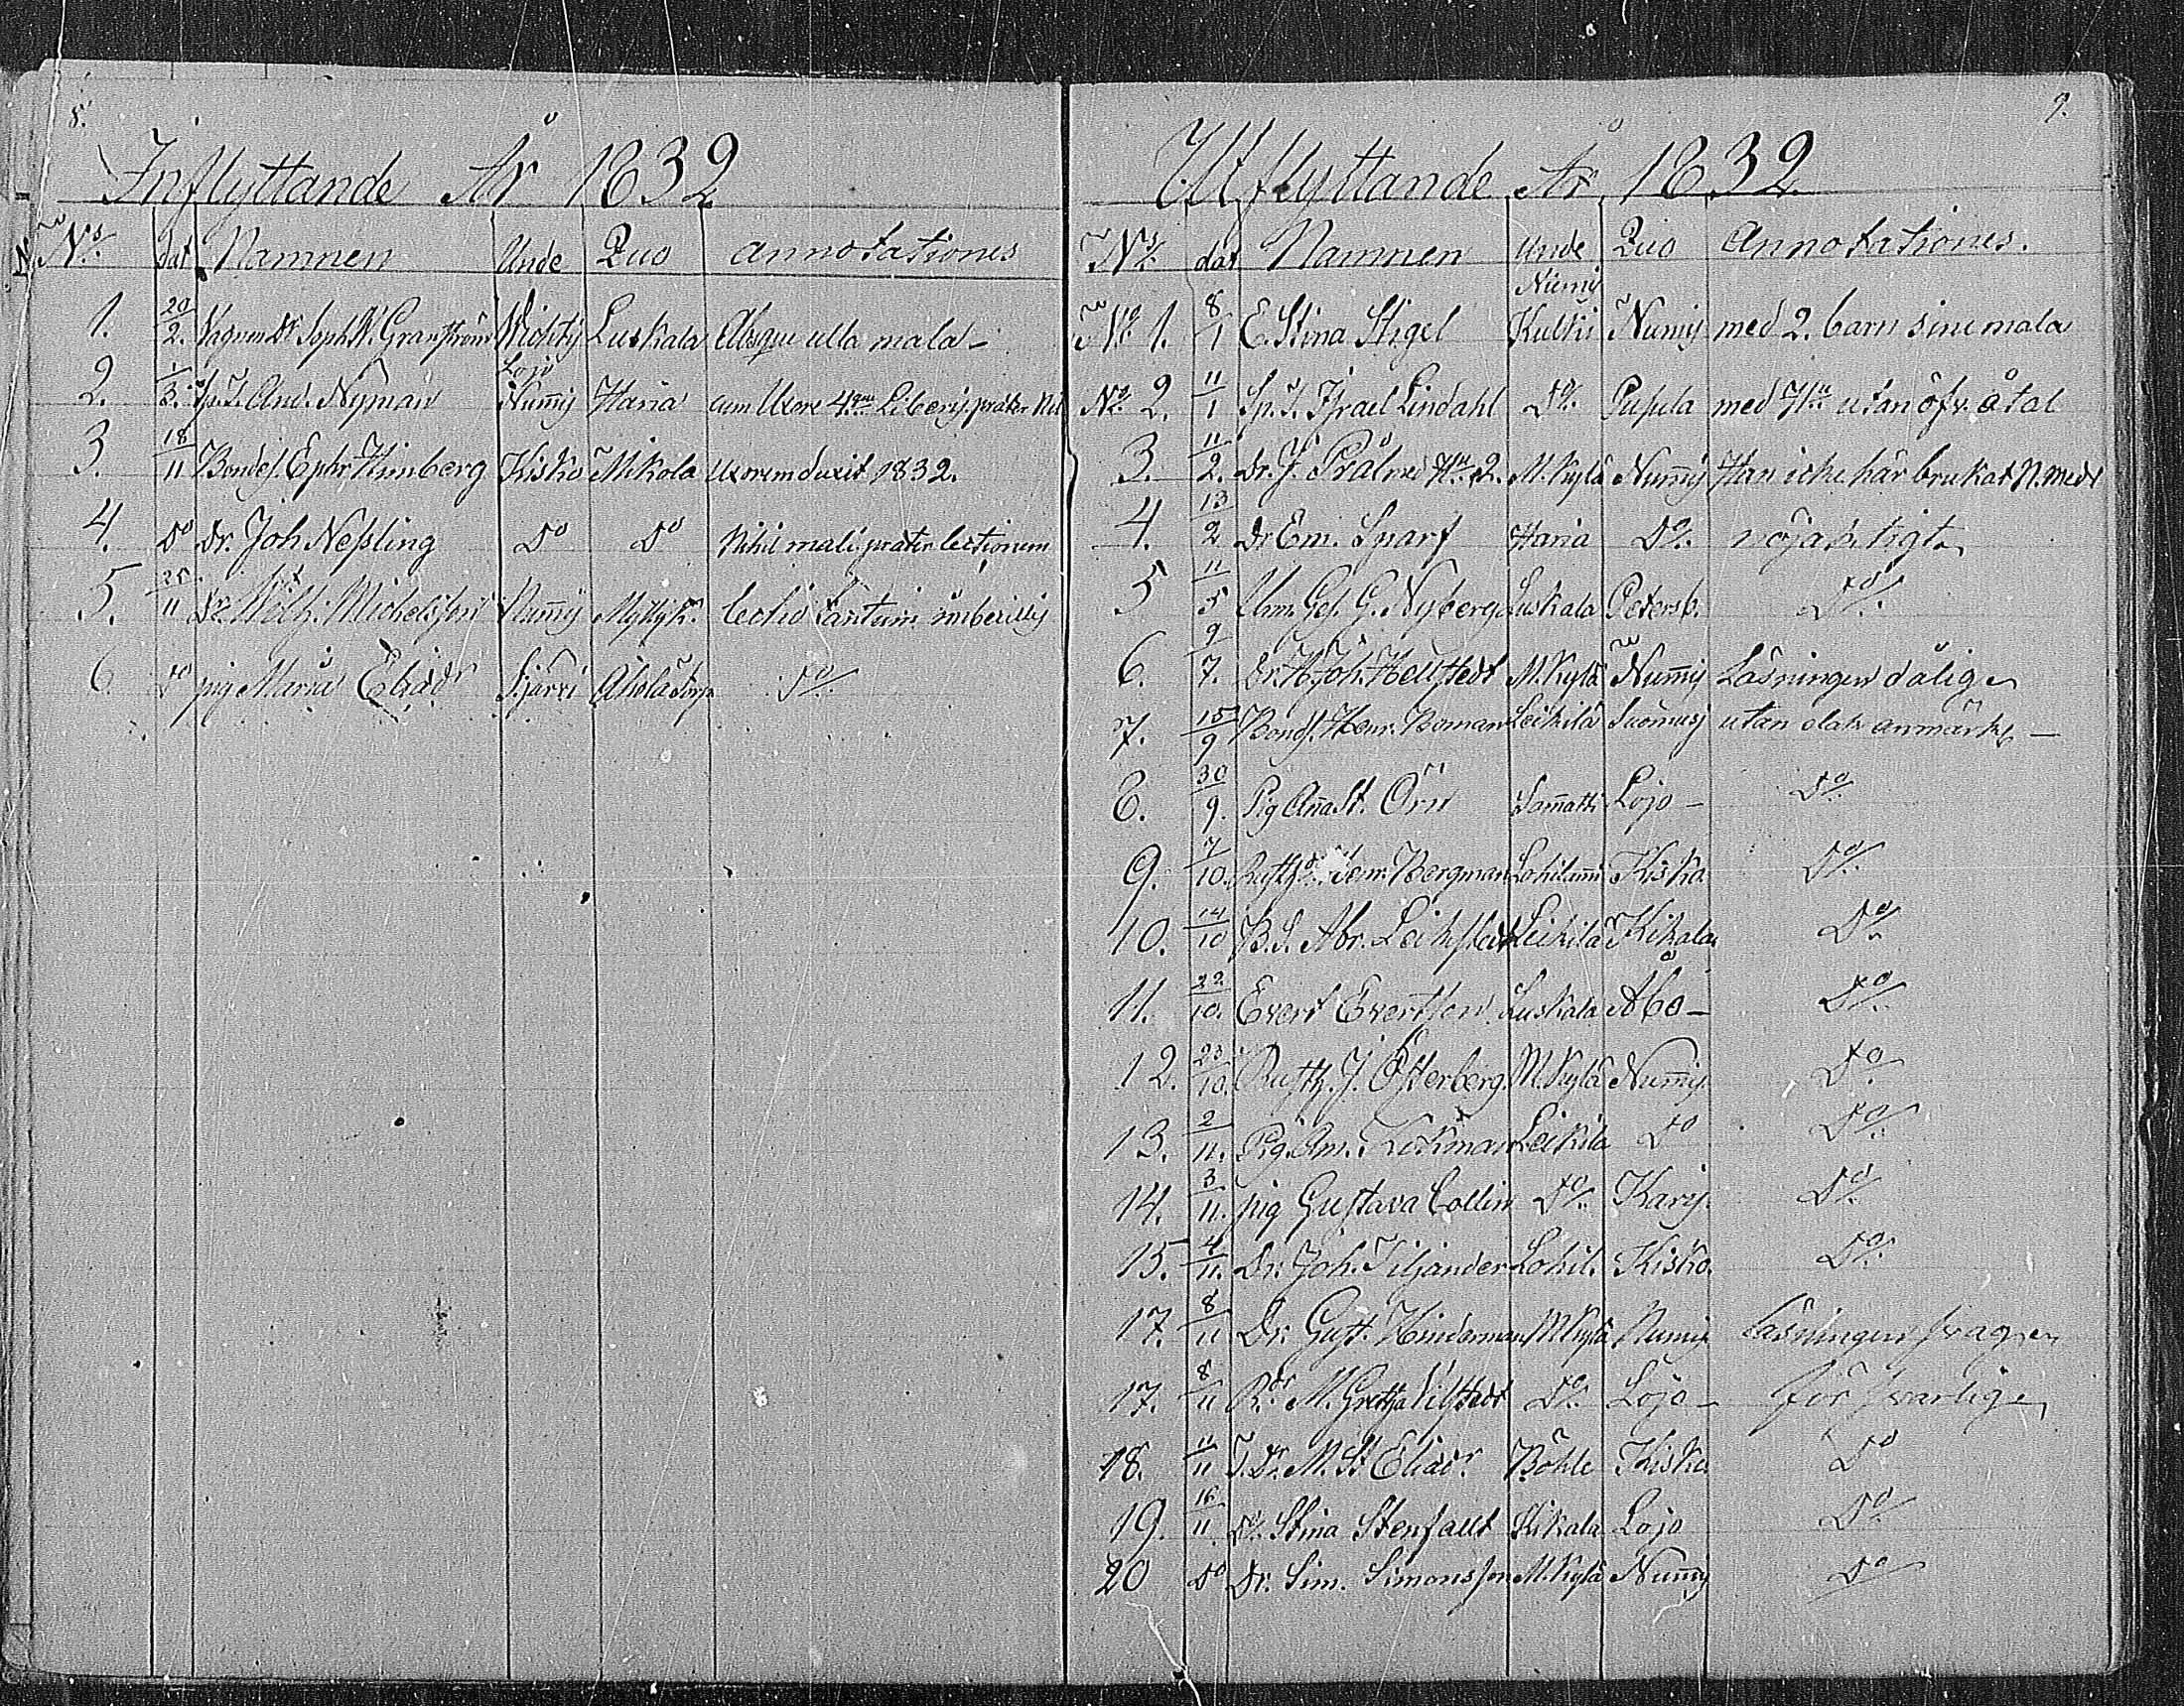 8.
Inflyttande År 1832
No. dat Namnen Unde Quo annotationes
1. 20/2. Vagnm Dr Soph. W. Granström Wichty Luskala Absque ulla mala –
2. 1/3. And. Nyman Lojo Numy Haria cum Uxore 4. Liberis, præter
3. 18/11 Bondes. Ephr. Kimberg Kisko Mikola Uxorem duxit 1832.
4. Do Dr. Joh Nessling Do Do Nihil mali præter lectionem
5. 25/11 Dr. Michelsson Nummy Myllyk. lectio tantum
6 Do pig Maria Eliadr Kjärri Ahola torp Do
9.
Utflyttande År 1832.
No. dat Namnen Unde Quo Annotationes.
No 1. 8/1 E. Stina Stigel Numy Kulki Numy med 2. barn sine mala
No 2. 11/1 Sp. I. Israel Lindahl Do. Pusula med Hu utan öfr. åtal
3. 11/2. Dr. J. Prålmed Hu. 2. M. Kylä Nummy Han icke här brukat N. medl
4. 13/2 Dr Em. Sparf Haria Do. nöjaktigt
5 11/5 G. Nyberg Luskala Petersb. Do.
6. 9/7. Dr. Joh. Hellstedt M. Kylä Nummy Läsningen dålig
7. 15/9 Bonds. Henr. Boman Leikilä Suomusj utan elak anmärk. –
8. 30/9. Pig Anna St. Örn Sammatti Lojo – Do
9. 7/10. Rusth. Henr. Bergman Lohilami Kisko Do.
10. 14/10 B. S. Abr. Leikstedt Leikilä Kikala Do.
11. 22/10. Evert Evertson Luskala Åbo – Do.
12. 23/10. Rusth. J. Österberg M. Kylä Nummy. Do.
13. 2/11. Pig. Am. Leikilä Do Do.
14. 3/11. pig Gustava Collin Do. Karis Do.
15. 4/11. Dr. Joh. Tiljander Lohil. Kisko. Do.
17. 8/11 Dr. Gust. Hinderman M Kylä Numy Läsningen svag
17. 8/11 M. Greta Vilstedt Do. Lojo – försvarlig
18. 11/11 T. Dr. M. St Eliadr. Böhle Kisko Do
19. 16/11. Do. Stina Stenfallt Kikala Lojo Do.
20 Do Dr. Sim. Simonsson M. Kylä Nummy Do